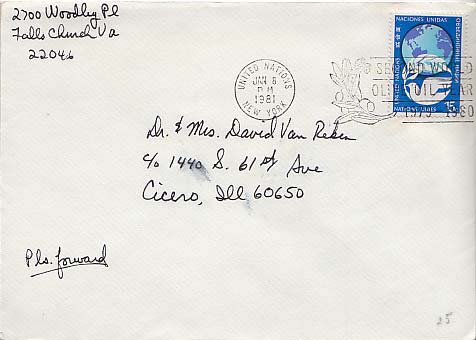 2700 Woodley Pl
Falls Church Va
22046
UNITED NATIONS
JAN 8
PM
1981
NEW YORK
SECOND WORLD
OLIVE OIL YEAR
1979 1980
NACIONES UNIDAS
UNITED NATIONS
NATIONS UNIES
15c
Dr. & Mrs. David Van Reken
c/o 1440 S. 61st Ave
Cicero, Ill 60650
Pls. forward
25